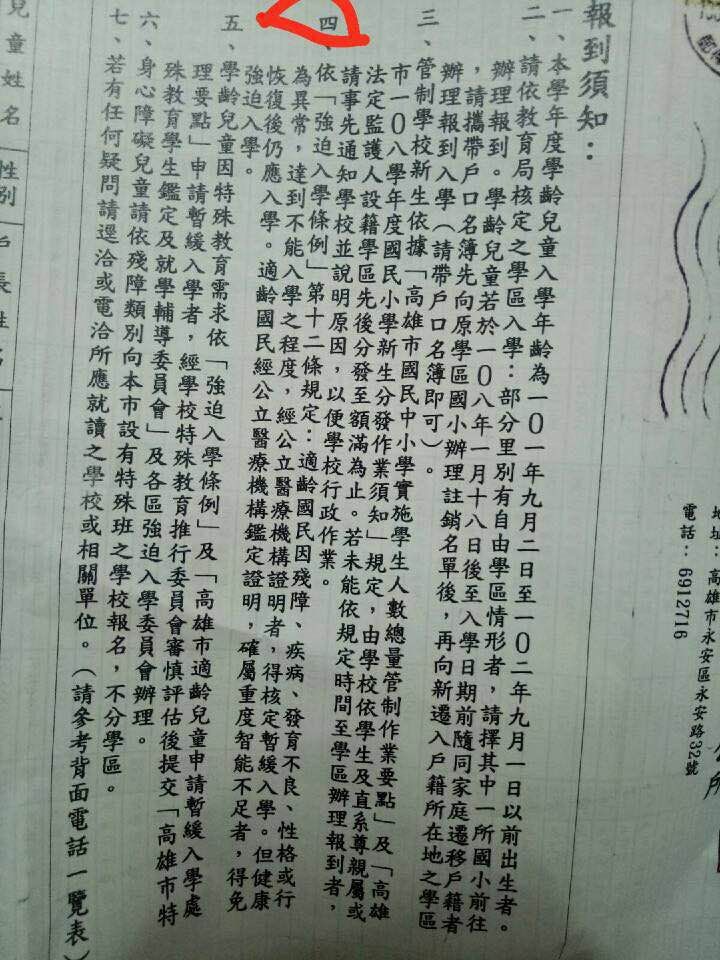 地址：高雄市永安區永安路32號
電話：6912716
報到須知：
一、本學年度學齡兒童入學年齡為一０一年九月二日至一０二年九月一日以前出生者。
二、請依教育局核定之學區入學：部分里別有自由學區情形者，請擇其中一所國小前往
辦理報到。學齡兒童若於一０八年一月十八日後至入學日期前隨同家庭遷移戶籍者
，請攜帶戶口名簿先向原學區國小辦理註銷名單後，再向新遷入戶籍所在地之學區
辦理報到入學（請帶戶口名簿即可）。
三、管制學校新生依據「高雄市國民中小學實施學生人數總量管制作業要點」及「高雄
市一０八學年度國民小學新生分發作業須知」規定，由學校依學生及直系尊親屬或
法定監護人設籍學區先後分發至額滿為止。若未能依規定時間至學區辦理報到者，
請事先通知學校並說明原因，以便學校行政作業。
四、依「強迫入學條例」第十二條規定：適齡國民因殘障、疾病、發育不良、性格或行
為異常，達到不能入學之程度，經公立醫療機構證明者，得核定暫緩入學。但健康
恢復後仍應入學。適齡國民經公立醫療機構鑑定證明，確屬重度智能不足者，得免
強迫入學。
五、學齡兒童因特殊教育需求依「強迫入學條例」及「高雄市適齡兒童申請暫緩入學處
理要點」申請暫緩入學者，經學校特殊教育推行委員會審慎評估後提交「高雄市特
殊教育學生鑑定及就學輔導委員會」及各區強迫入學委員會辦理。
六、身心障礙兒童請依殘障類別向本市設有特殊班之學校報名，不分學區。
七、若有任何疑問請逕洽或電洽所應就讀之學校或相關單位。（請參考背面電話一覽表）
兒童姓名
性別
戶長姓名